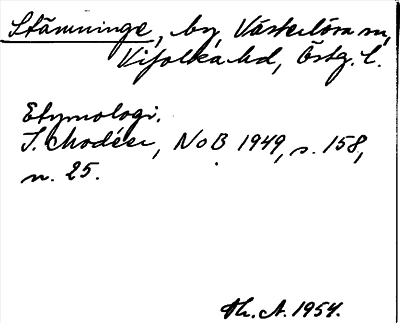 Stämninge, by, Västerlösa sn,
Vifolka hd, Östg. l.
Etymologi.
I. Modéer, NoB 1949, s. 158,
n. 25.
Th. A. 1954.